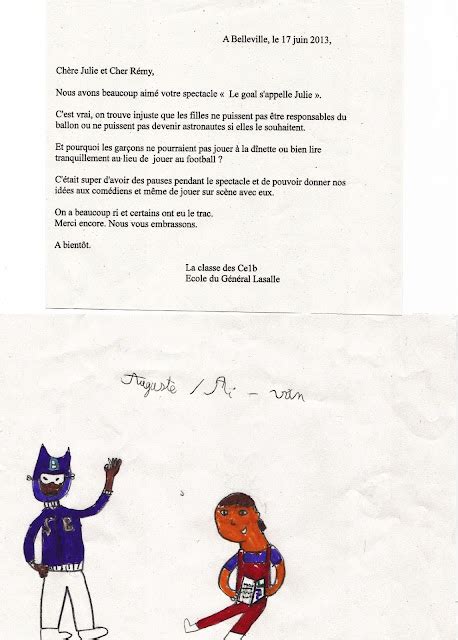 A Belleville, le 17 juin 2013,
Chère Julie et Cher Rémy,
Nous avons beaucoup aimé votre spectacle « Le goal s'appelle Julie ».
C'est vrai, on trouve injuste que les filles ne puissent pas être responsables du
ballon ou ne puissent pas devenir astronautes si elles le souhaitent.
Et pourquoi les garçons ne pourraient pas jouer à la dînette ou bien lire
tranquillement au lieu de jouer au football ?
C'était super d'avoir des pauses pendant le spectacle et de pouvoir donner nos
idées aux comédiens et même de jouer sur scène avec eux.
On a beaucoup ri et certains ont eu le trac.
Merci encore. Nous vous embrassons.
A bientôt.
La classe des Ce1b
Ecole du Général Lasalle
Auguste / Ai - van
B